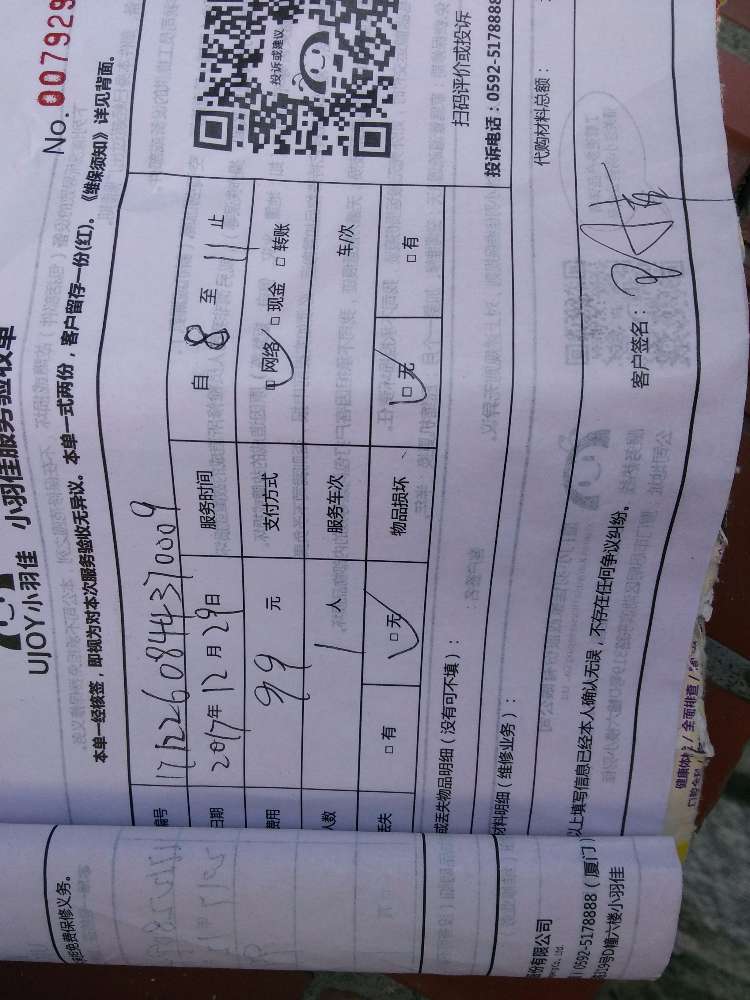 No. 007929
UJOY小羽佳 小羽佳服务验收单
本单一经核签，即视为对本次服务验收无异议。本单一式两份，客户留存一份(红)。《维保须知》详见背面。
编号 1712260844370009
日期 2017年 12月 29日 服务时间 自 8 至 11 止
费用 99 元 支付方式 □网络 □现金 □转账
人数 1 人 服务车次 车/次
丢失 □有 □无 物品损坏 □无 □有
投诉或建议
扫码评价或投诉
投诉电话：0592-5178888
或丢失物品明细（没有可不填）：
材料明细（维修业务）： 代购材料总额：
以上填写信息已经本人确认无误，不存在任何争议纠纷。
客户签名：
免费保修义务。
份有限公司
0592-5178888（厦门）
319号D幢六楼小羽佳
健康体
全面排查